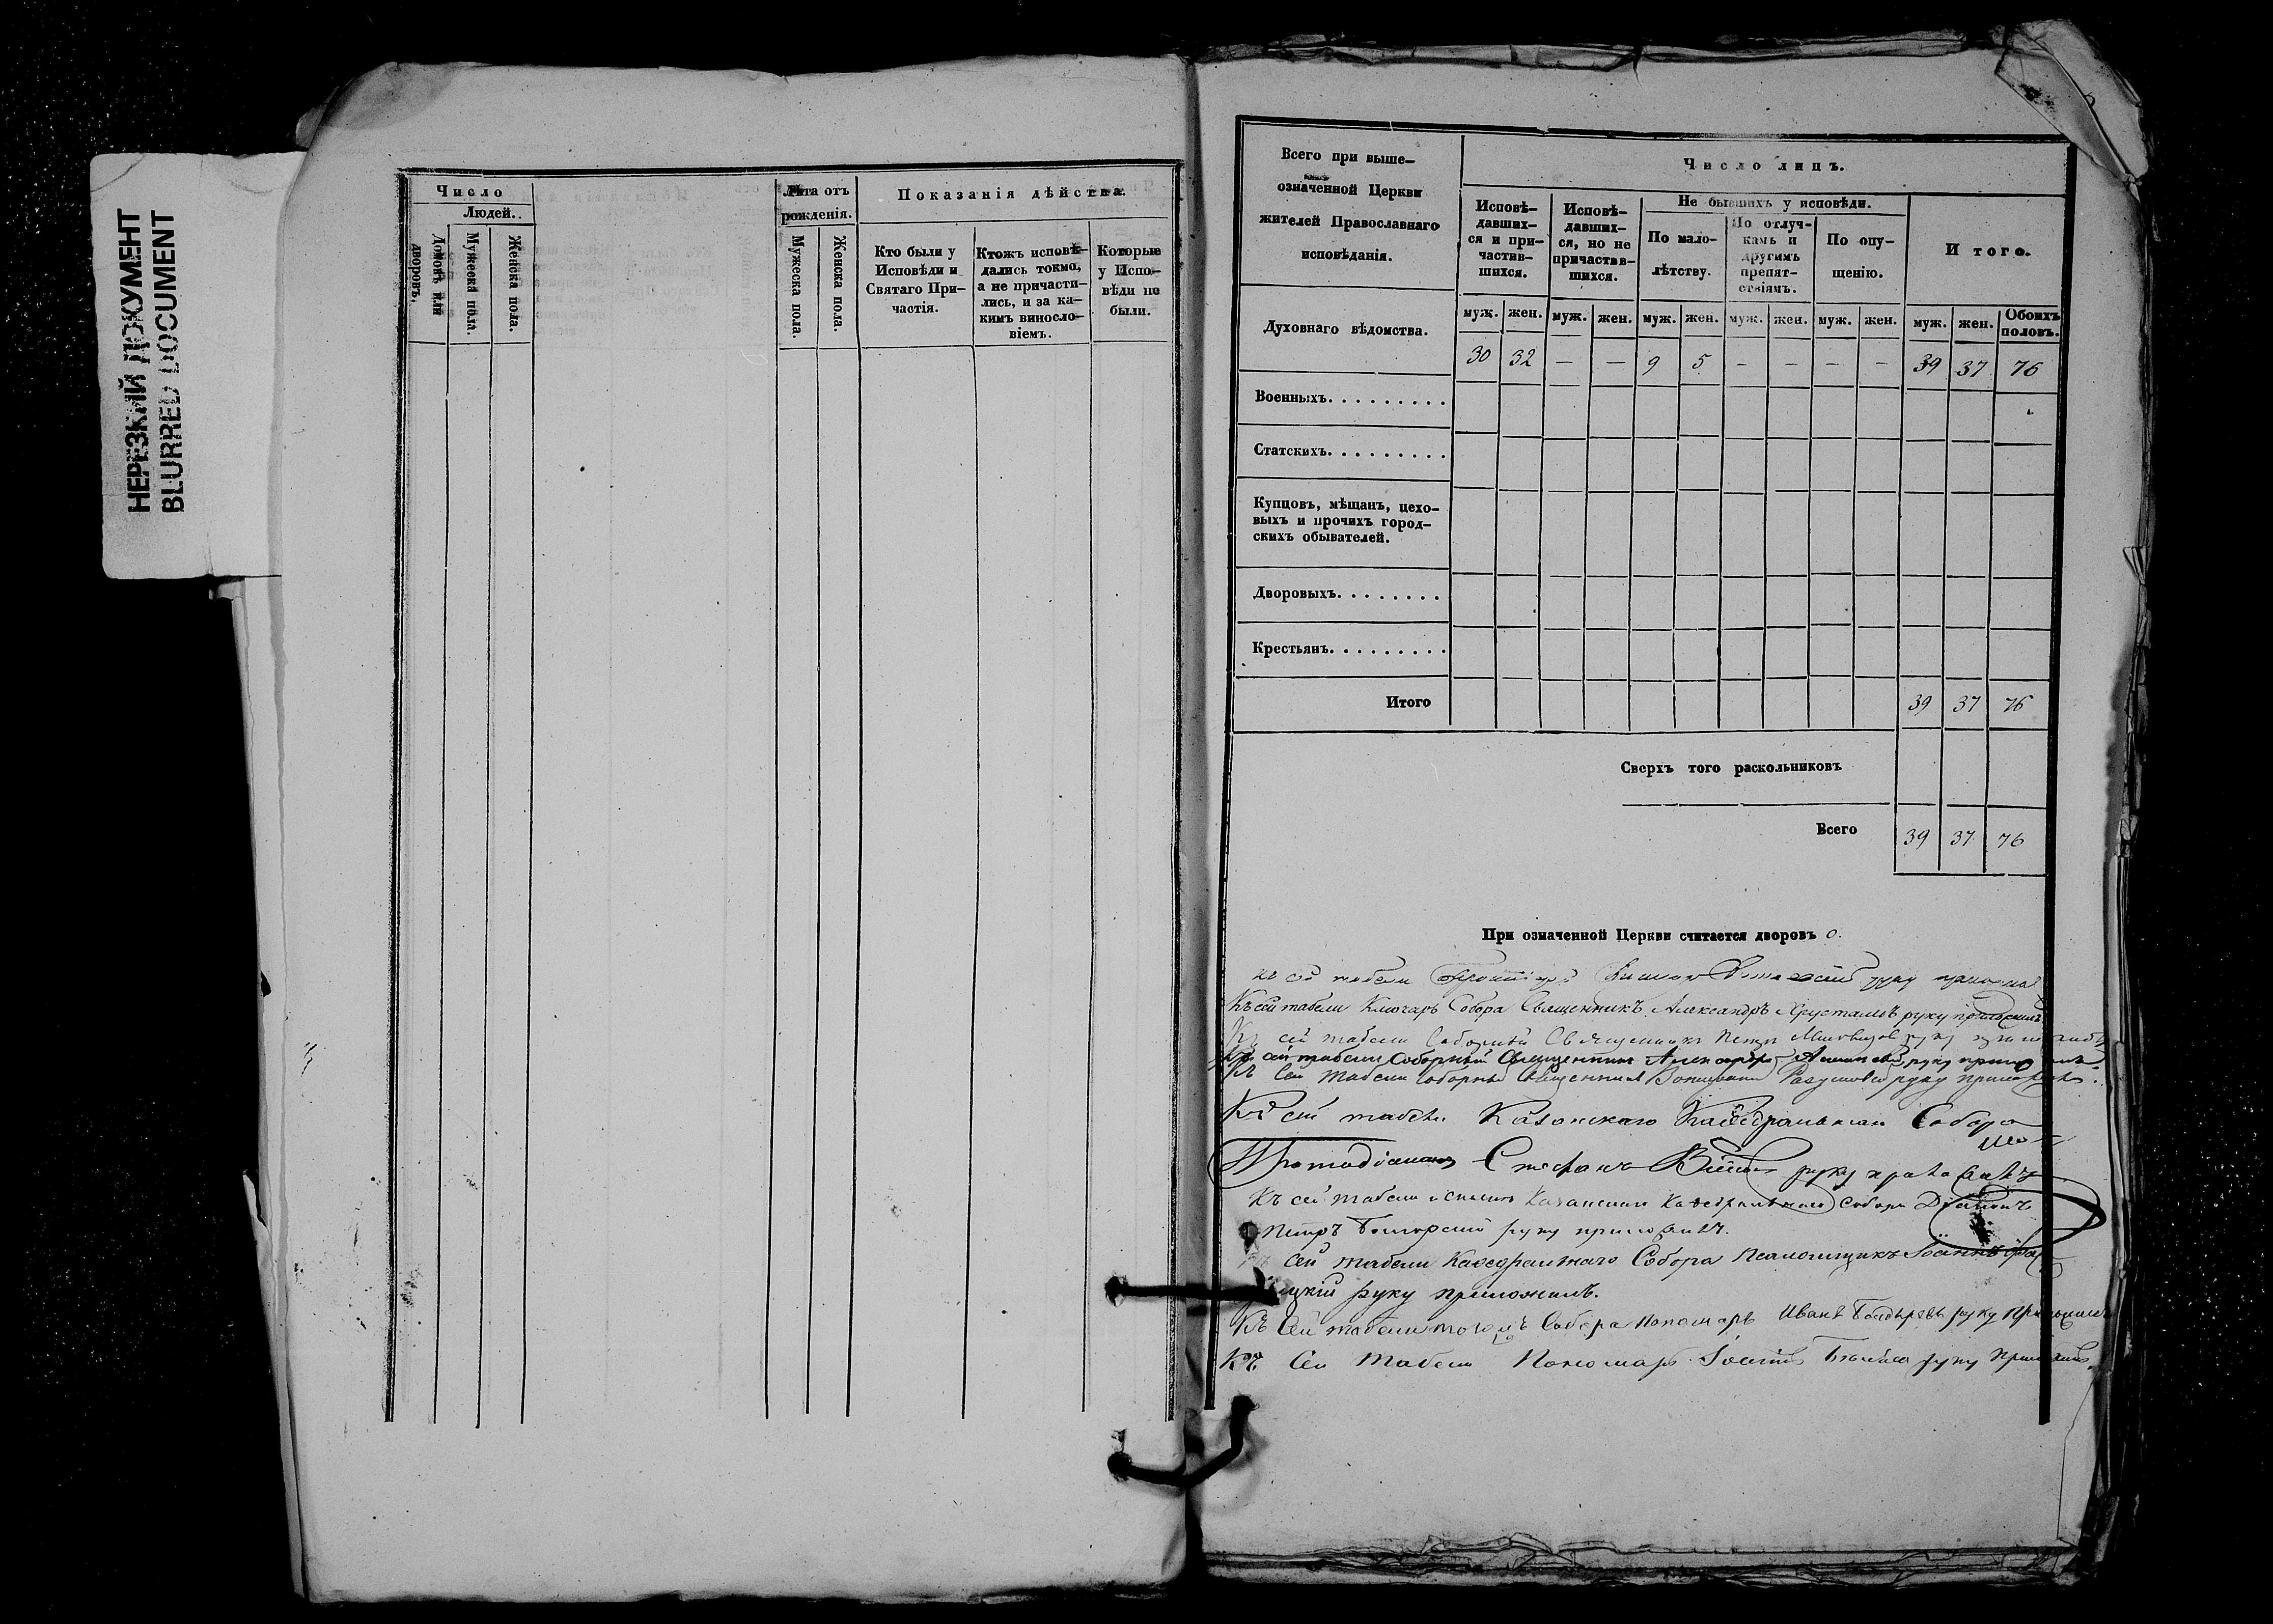 НЕРЕЗКИЙ ДОКУМЕНТ
BLURRED DOCUMENT
Число
Людей.
Домовъ или дворовъ.
Мужеска пола.
Женска пола.
Лѣта отъ рожденія.
Мужеска пола
Женска пола.
Показанія дѣйства.
Кто были у Исповѣди и Святаго Причастія.
Ктожъ исповѣдались токмо, а не причастились, и за какимъ винословіемъ.
Которые у Исповѣди не были.
Всего при вышеозначенной Церкви жителей Православнаго исповѣданія.
Число лицъ.
Исповѣдавшихся и причастившихся.
Исповѣдавшихся, но не причастившихся.
Не бывшихъ у исповѣди.
По малолѣтству.
По отлучкамъ и другимъ препятствіямъ.
По опущенію.
Итого.
муж. жен. муж. жен. муж. жен. муж. жен. муж. жен. муж. жен. Обоихъ половъ.
Духовнаго вѣдомства. 30 32 — — 9 5 — — — — 39 37 76
Военныхъ.........
Статскихъ.........
Купцовъ, мѣщанъ, цеховыхъ и прочихъ городскихъ обывателей.
Дворовыхъ........
Крестьянъ.........
Итого 39 37 76
Сверхъ того раскольниковъ
Всего 39 37 76
При означенной Церкви считается дворовъ 0.
къ сей табели руку
Къ сей табели Ключарь Собора Священникъ Александръ Хрусталевъ руку приложилъ
Къ сей табели Соборный Священникъ Петръ руку
Къ сей табели Соборный Священникъ Александръ руку
Къ сей табели Соборный Священникъ руку приложилъ.
Къ сей табели Казанскаго Каѳедральнаго Собора
Протодіаконъ Стефанъ руку приложилъ
Къ сей табели Казанскаго Каѳедральнаго Собора Діаконъ
Петръ руку приложилъ.
сей табели Каѳедральнаго Собора Псаломщикъ Іоаннъ
руку приложилъ.
Къ сей табели Собора Пономарь Иванъ Болдыревъ руку приложилъ
Къ сей табели Пономарь Іоаннъ руку приложилъ.